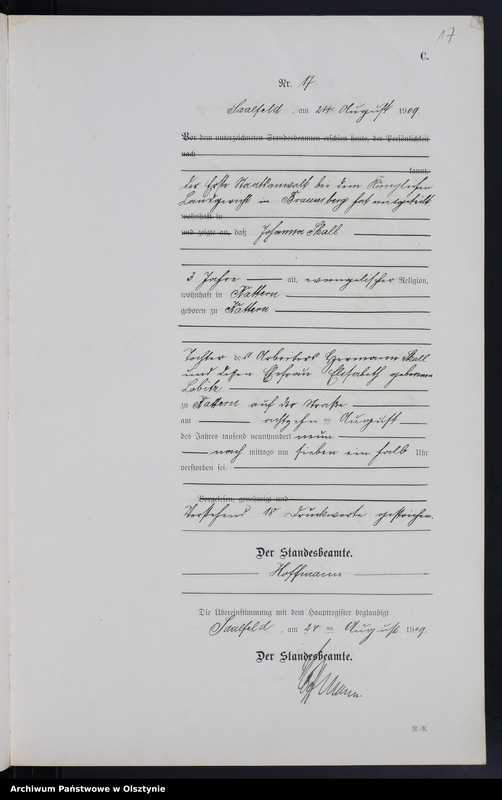 17
C.
Nr. 17
Saalfeld, am 24 August 1909.
Vor dem unterzeichneten Standesbeamten erschien heute, der Persönlichkeit
nach
kannt,
der Erste Staatsanwalt bei dem Königlichen
Landgericht in Braunsberg hat mitgeteilt
wohnhaft in
und zeigte an, daß Johanna Skall
3 Jahre alt, evangelischer Religion,
wohnhaft in Nattern
geboren zu Nattern
Tochter des Arbeiters Hermann Skall
und dessen Ehefrau Elisabeth geborenen
Lobitz
zu Nattern auf der Straße
am achtzehn ten August
des Jahres tausend neunhundert neun
nach mittags um sieben ein halb Uhr
verstorben sei.
Vorgelesen, genehmigt und
Vorstehend 18 Druckworte gestrichen.
Der Standesbeamte.
Hoffmann
Die Übereinstimmung mit dem Hauptregister beglaubigt
Saalfeld, am 24 ten August 1909.
Der Standesbeamte.
Hoffmann.
N.-R.
Archiwum Państwowe w Olsztynie